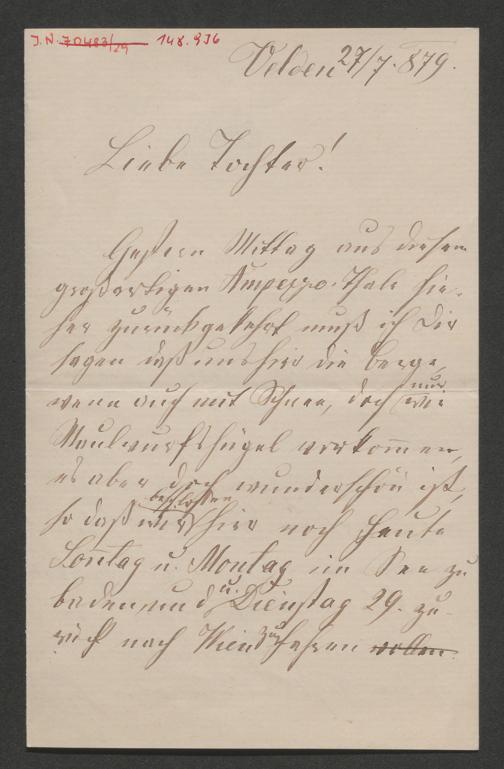 J.N. 70483/29 148.936
Velden 27/7. 879.
Liebe Tochter!
Gestern Mittag aus diesem
großartigen Ampezzo-Thale hie-
her zurückgekehrt muß ich Dir
sagen daß uns hier die Berge,
wenn auch mit Schnee, doch nur wie
Maulwurfshügel vorkommen,
es aber doch wunderschön ist,
so daß wir beschlossen hier noch heute
Sontag u. Montag im See zu
baden, und u. Dienstag 29. zu-
rück nach Wien zu fahren wollen.